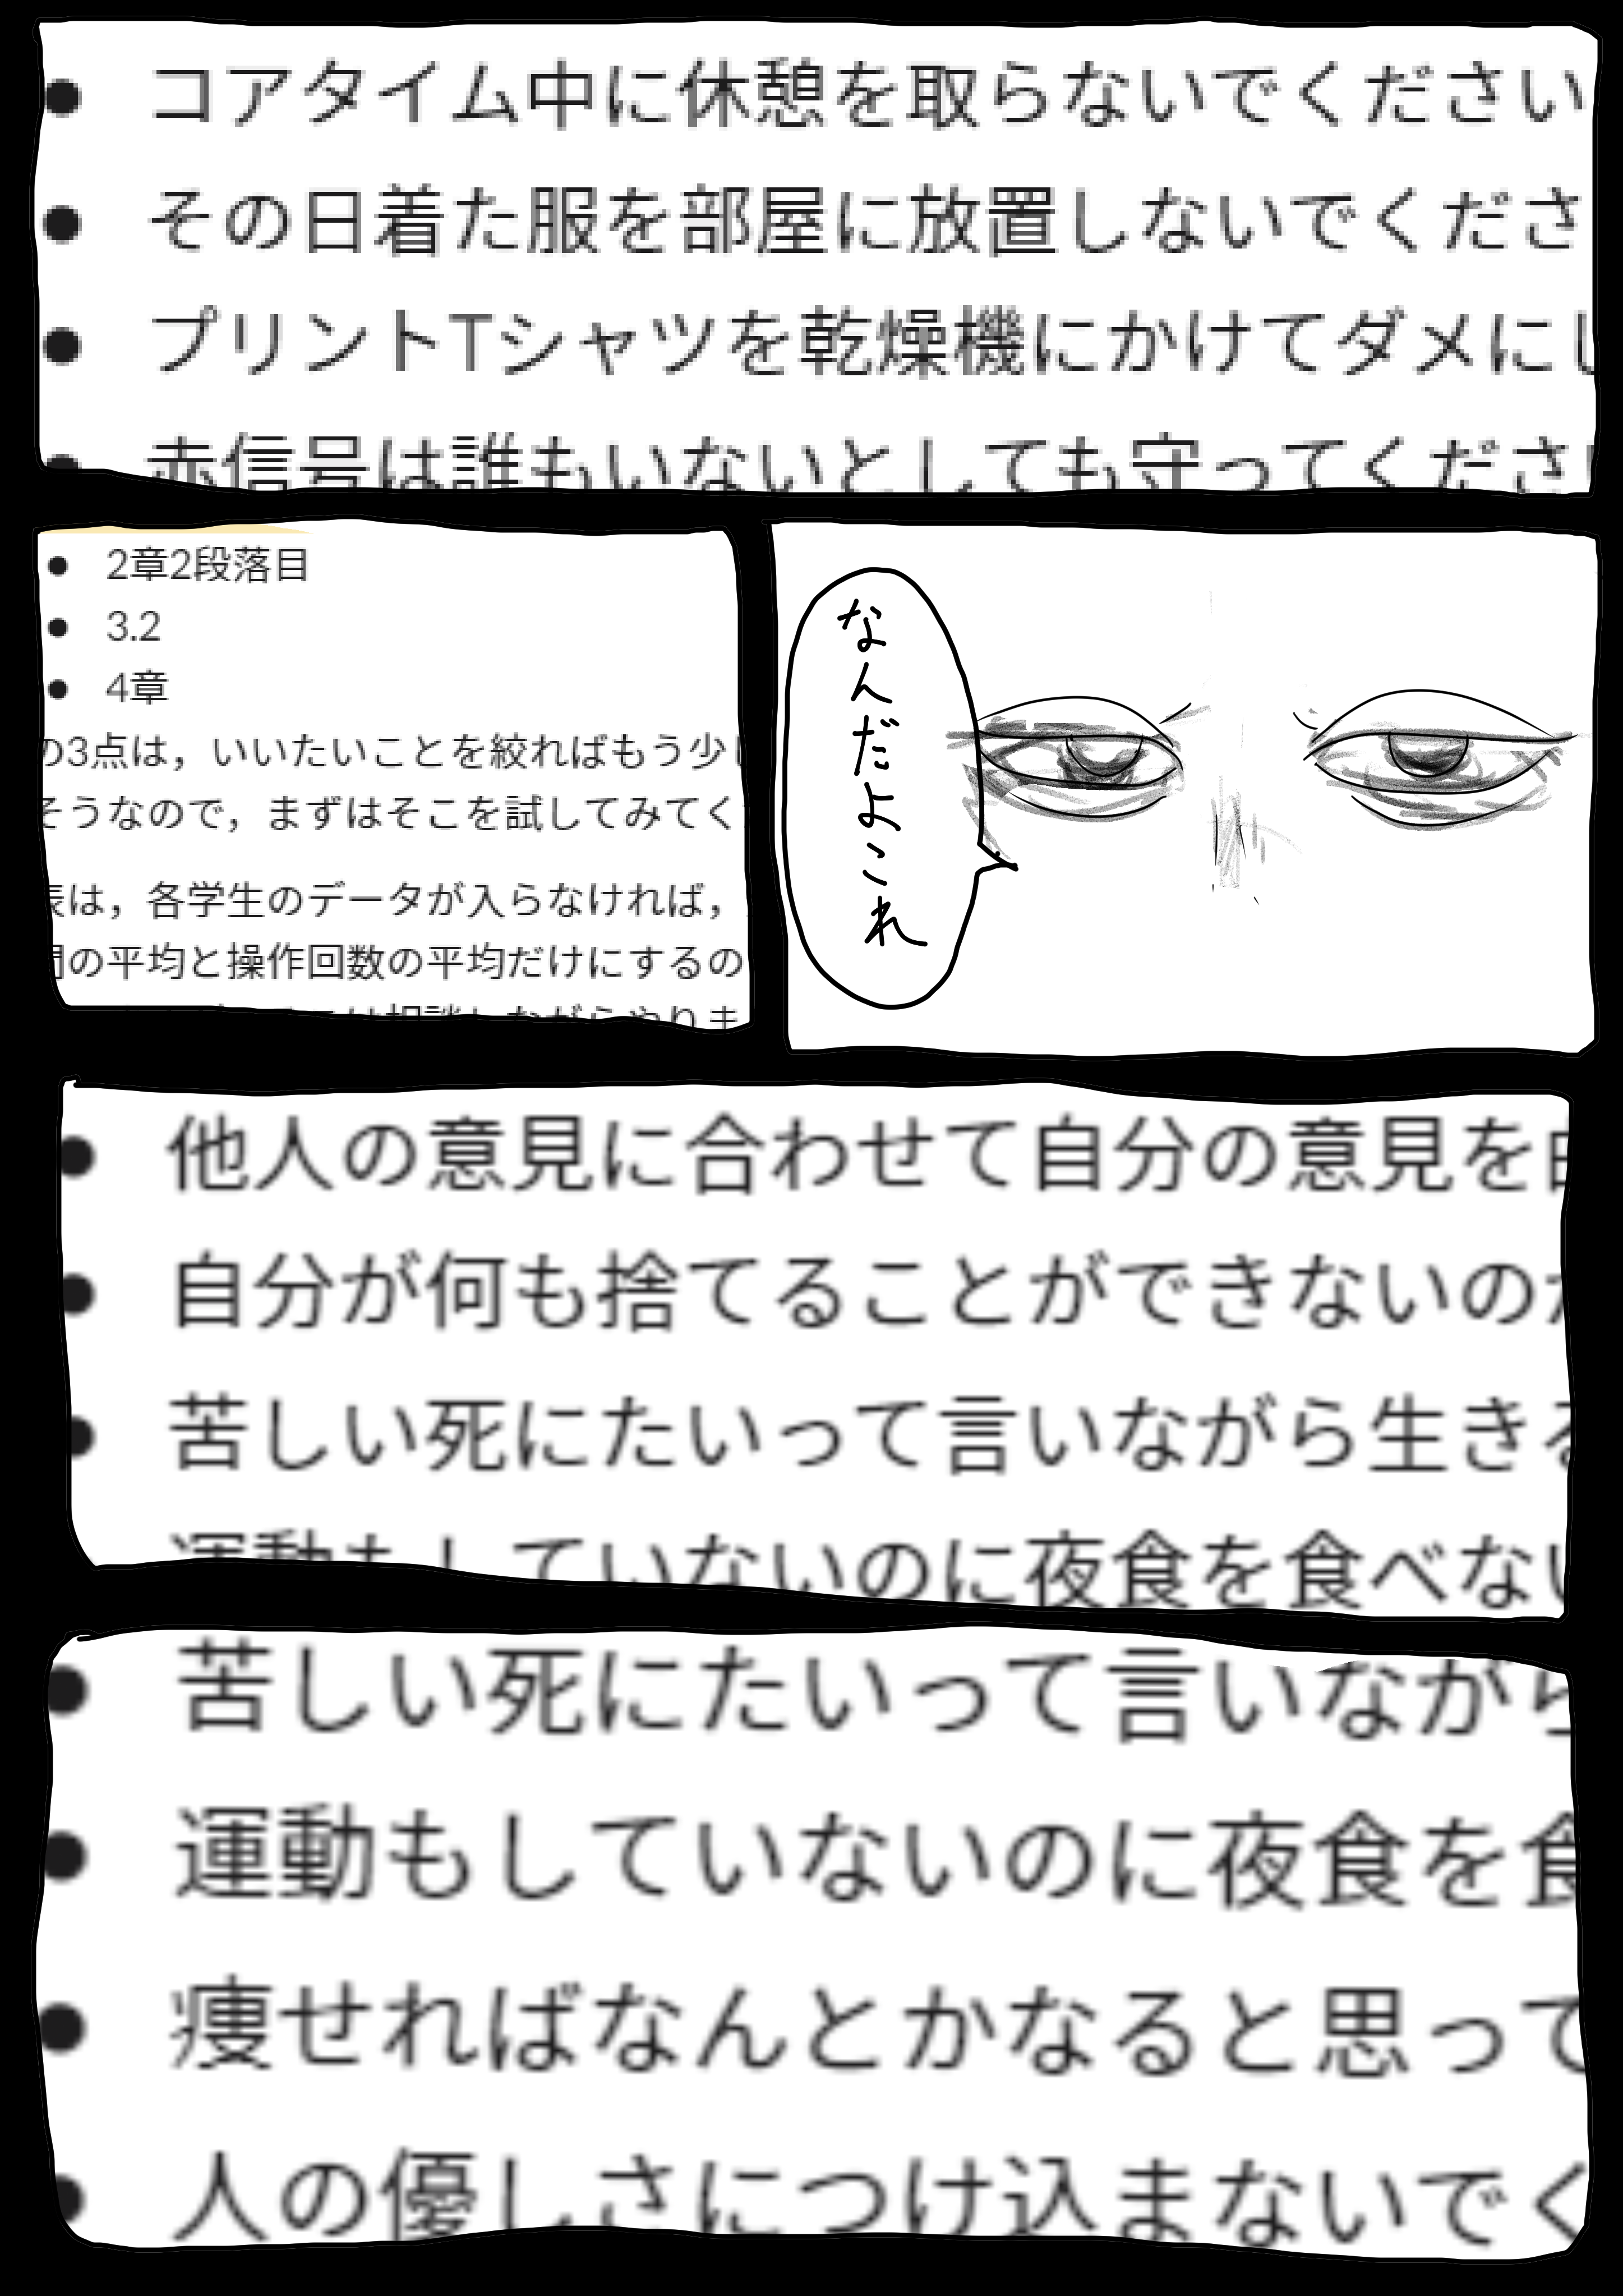 コアタイム中に休憩を取らないでください
その日着た服を部屋に放置しないでくださ
プリントTシャツを乾燥機にかけてダメにし
赤信号は誰もいないとしても守ってくださ
2章2段落目
3.2
4章
の3点は，いいたいことを絞ればもう少し
そうなので，まずはそこを試してみてく
表は，各学生のデータが入らなければ，
間の平均と操作回数の平均だけにするの
は相談しながらやりま
なんだよこれ
他人の意見に合わせて自分の意見を
自分が何も捨てることができないのか
苦しい死にたいって言いながら生きる
運動もしていないのに夜食を食べない
苦しい死にたいって言いながら
運動もしていないのに夜食を食
痩せればなんとかなると思って
人の優しさにつけ込まないでく